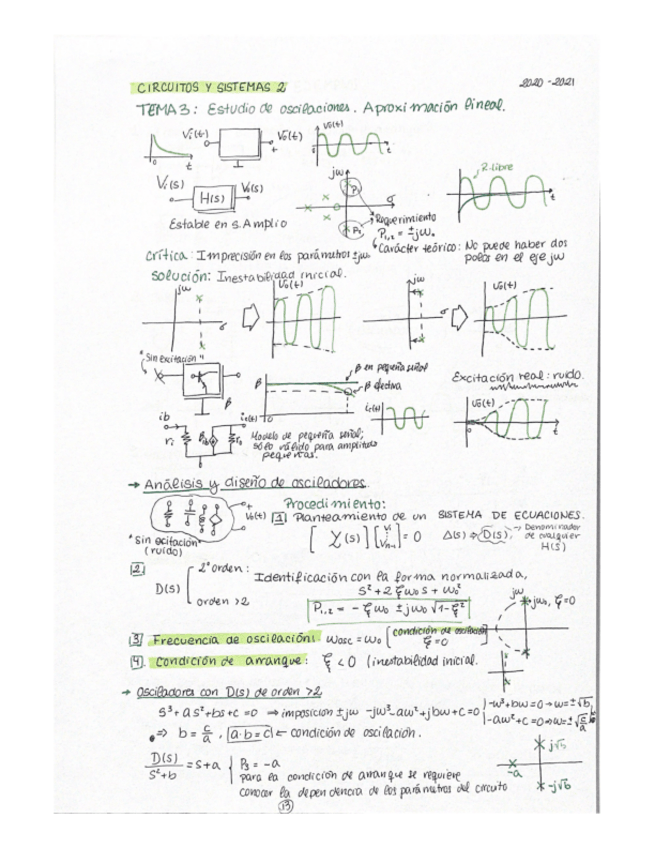 CIRCUITOS Y SISTEMAS 2
2020-2021
TEMA 3: Estudio de oscilaciones. Aproximación lineal.
Vi(t)
Vo(t)
+
Vo(t)
t
o
t
jω
σ
R. libre
t
Vi(s)
H(s)
Vo(s)
Estable en s. Amplio
Requerimiento
P1,2 = ±jωo
Carácter teórico: No puede haber dos
polos en el eje jω
Crítica: Imprecisión en los parámetros ±jωo
Solución: Inestabilidad inicial.
jω
σ
Vo(t)
t
jω
σ
Vo(t)
t
"Sin excitación"
β
β
β en pequeña señal
β efectiva
Excitación real: ruido.
ib
ri
Modelo de pequeña señal;
sólo válido para amplitudes
pequeñas.
Vo(t)
t
→ Análisis y diseño de osciladores.
Procedimiento:
+
Vo(t)
-
1 Planteamiento de un SISTEMA DE ECUACIONES.
[ Y(s) ] [V1 ⋮ Vn-1] = 0 Δ(s) → D(s) → Denominador
de cualquier
H(s)
"Sin excitación"
(ruido)
2
D(s)
2º orden: Identificación con la forma normalizada,
s² + 2ξωo s + ωo²
orden >2
P1,2 = -ξωo ± jωo √1-ξ²
jω
jωo, ξ=0
3 Frecuencia de oscilación: ωosc = ωo [condición de oscilación
ξ=0]
4. Condición de arranque: ξ < 0 (inestabilidad inicial.
→ Osciladores con D(s) de orden >2
s³ + as² + bs + c = 0 ⇒ imposición ±jω -jω³ - aω² + jbω + c = 0 { -ω³ + bω = 0 → ω = ±√b
-aω² + c = 0 ⇒ ω = ±√c/a
⇒ b = c/a , a·b = c ← condición de oscilación.
D(s)/s²+b = s + a { P3 = -a
para la condición de arranque se requiere
conocer la dependencia de los parámetros del circuito
j√b
-a
-j√b
13